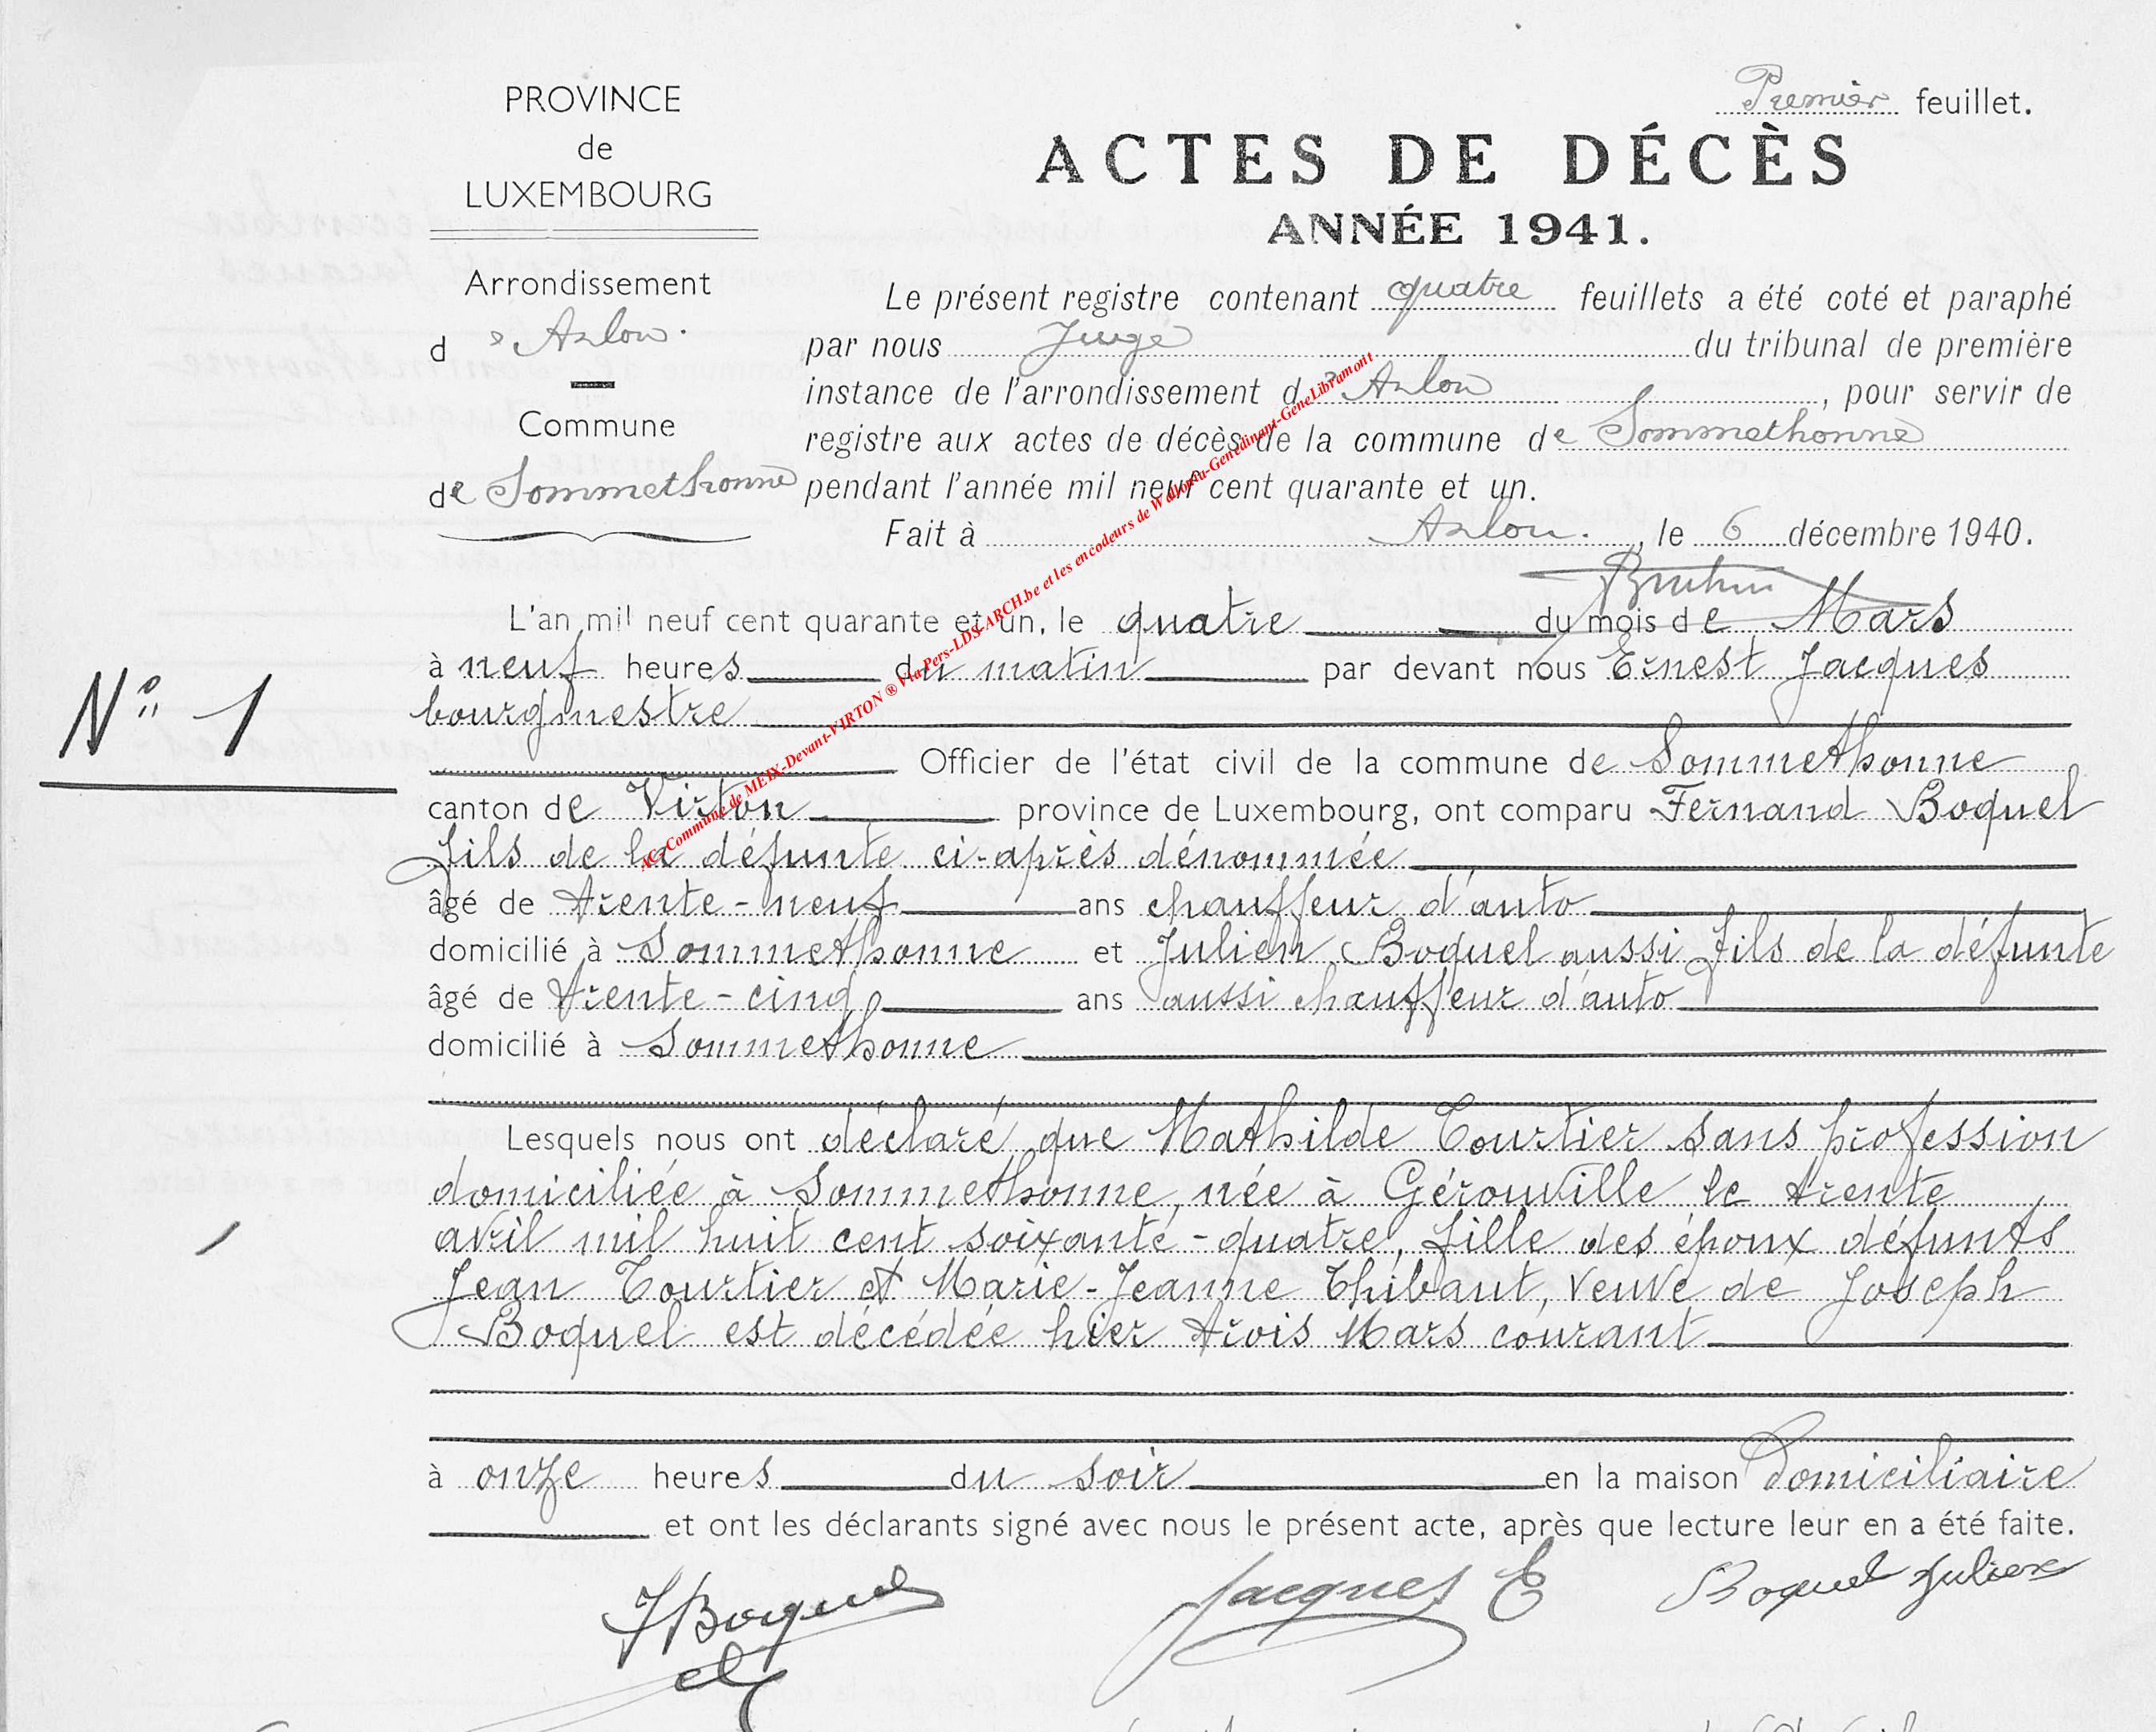 Premier feuillet.
PROVINCE
de
LUXEMBOURG
Arrondissement
d'Arlon.
Commune
de Sommethonne
ACTES DE DÉCÈS
ANNÉE 1941.
Le présent registre contenant quatre feuillets a été coté et paraphé
par nous Juge du tribunal de première
instance de l'arrondissement d'Arlon, pour servir de
registre aux actes de décès de la commune de Sommethonne
pendant l'année mil neuf cent quarante et un.
Fait à Arlon., le 6 décembre 1940.
N° 1
L'an mil neuf cent quarante et un, le quatre du mois de Mars
à neuf heures du matin par devant nous Ernest Jacques
bourgmestre
Officier de l'état civil de la commune de Sommethonne
canton de Virton province de Luxembourg, ont comparu Fernand Boquel
fils de la défunte ci-après dénommée
âgé de trente-neuf ans chauffeur d'auto
domicilié à Sommethonne et Julien Boquel aussi fils de la défunte
âgé de trente-cinq ans aussi chauffeur d'auto
domicilié à Sommethonne
Lesquels nous ont déclaré que Mathilde Tourtier sans profession
domiciliée à Sommethonne, née à Gérouville le trente
avril mil huit cent soixante-quatre, fille des époux défunts
Jean Tourtier et Marie-Jeanne Thibaut, veuve de Joseph
Boquel est décédée hier trois Mars courant
à onze heures du soir en la maison domiciliaire
et ont les déclarants signé avec nous le présent acte, après que lecture leur en a été faite.
FBoquel Jacques E Boquel Julien
AC-Commune de MEIX-Devant-VIRTON ® Via Pers-LDS-ARCH.be et les encodeurs de Wallonia-Genedinant-GeneLibramont